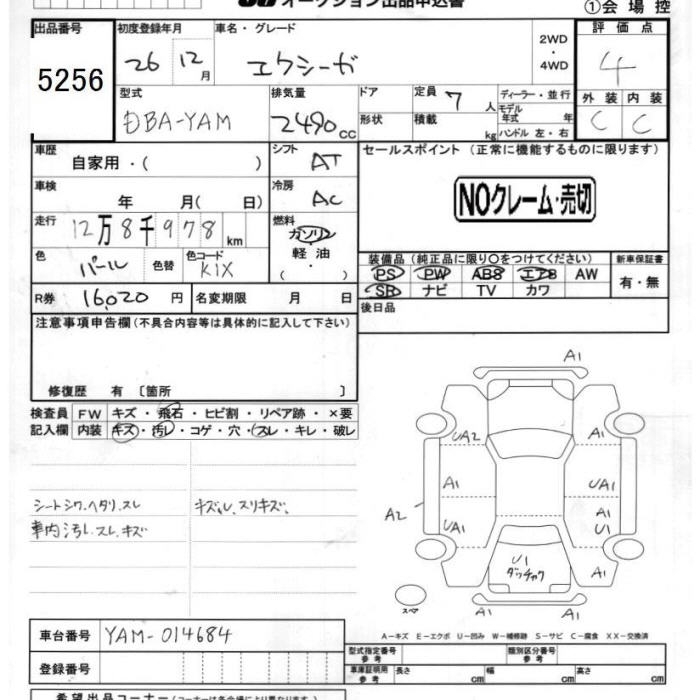 オークション出品申込書 ①会場控
出品番号 初度登録年月 車名・グレード 2WD・4WD 評価点
5256 26 12月 エクシーガ 4
型式 排気量 ドア 定員 7人 ディーラー・並行 外装 内装
DBA-YAM 2490cc 形状 積載 kg モデル年式 年 ハンドル 左・右 C C
車歴 シフト セールスポイント (正常に機能するものに限ります)
自家用・( ) AT
車検 冷房 NOクレーム・売切
年 月( 日) AC
走行 12万8千978km 燃料
ガソリン
色 色替 色コード 軽油 装備品(純正品に限り○をつけてください) 新車保証書
パール KIX ( ・ ) PS PW AB8 エアB AW 有・無
SR ナビ TV カワ
R券 16,020円 名変期限 月 日 後日品
注意事項申告欄(不具合内容等は具体的に記入して下さい)
修復歴 有 〔箇所 〕
検査員 FW キズ・飛石・ヒビ割・リペア跡・×要
記入欄 内装 キズ・汚レ・コゲ・穴・スレ・キレ・破レ
シートシワ、ヘタリ、スレ キズ凹、スリキズ、
車内汚し、スレ、キズ
A1
UA2 A1
A1 UA1
A2 UA1 A1
U1
U1 A1
ダッチャク
スペア A1 A1
A−キズ E−エクボ U−凹み W−補修跡 S−サビ C−腐食 XX−交換済
車台番号 YAM-014684
型式指定番号 参考 類別区分番号 参考
登録番号 車庫証明用 参考 長さ cm 幅 cm 高さ cm
希望出品コーナー(コーナーは各会場により異なります)